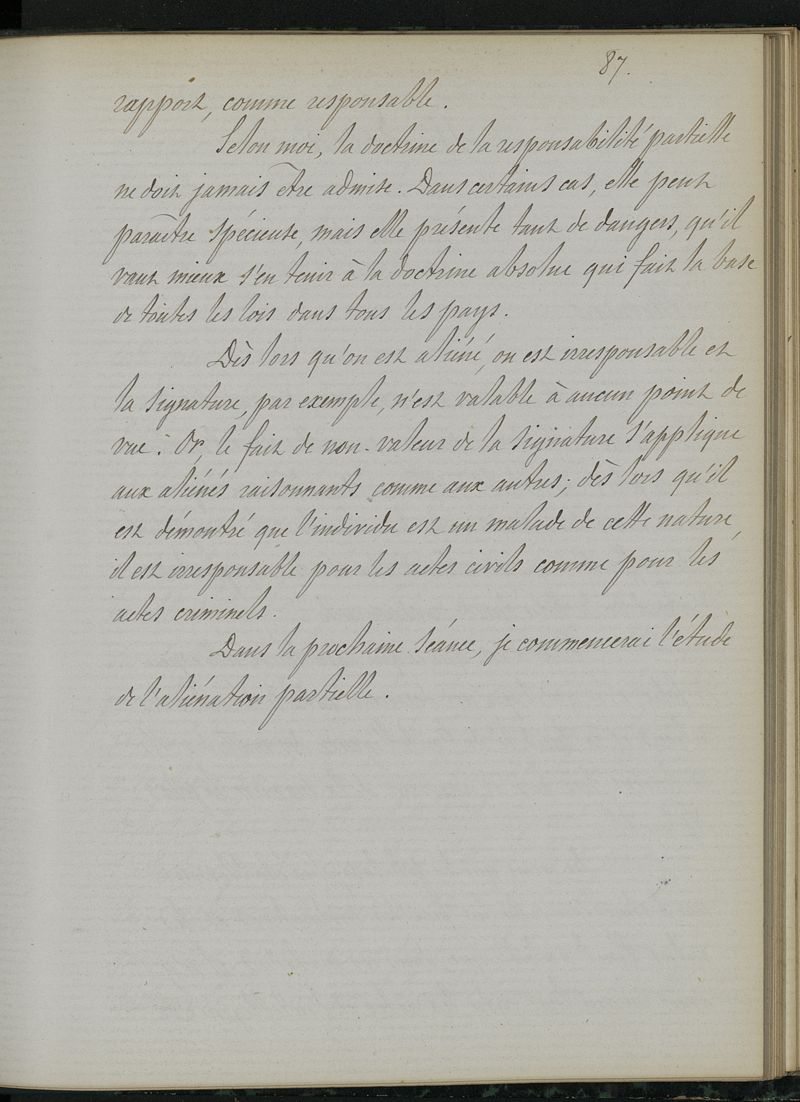 87.
rapport, comme responsable.
Selon moi, la doctrine de la responsabilité partielle
ne doit jamais être admise. Dans certains cas, elle peut
paraître spécieuse, mais elle présente tant de dangers, qu'il
vaut mieux s'en tenir à la doctrine absolue qui fait la base
de toutes les lois dans tous les pays.
Dès lors qu'on est aliéné, on est irresponsable et
la signature, par exemple, n'est valable à aucun point de
vue. Or, le fait de non-valeur de la signature s'applique
aux aliénés raisonnants comme aux autres; dès lors qu'il
est démontré que l'individu est un malade de cette nature,
il est irresponsable pour les actes civils comme pour les
actes criminels.
Dans la prochaine séance, je commencerai l'étude
de l'aliénation partielle.